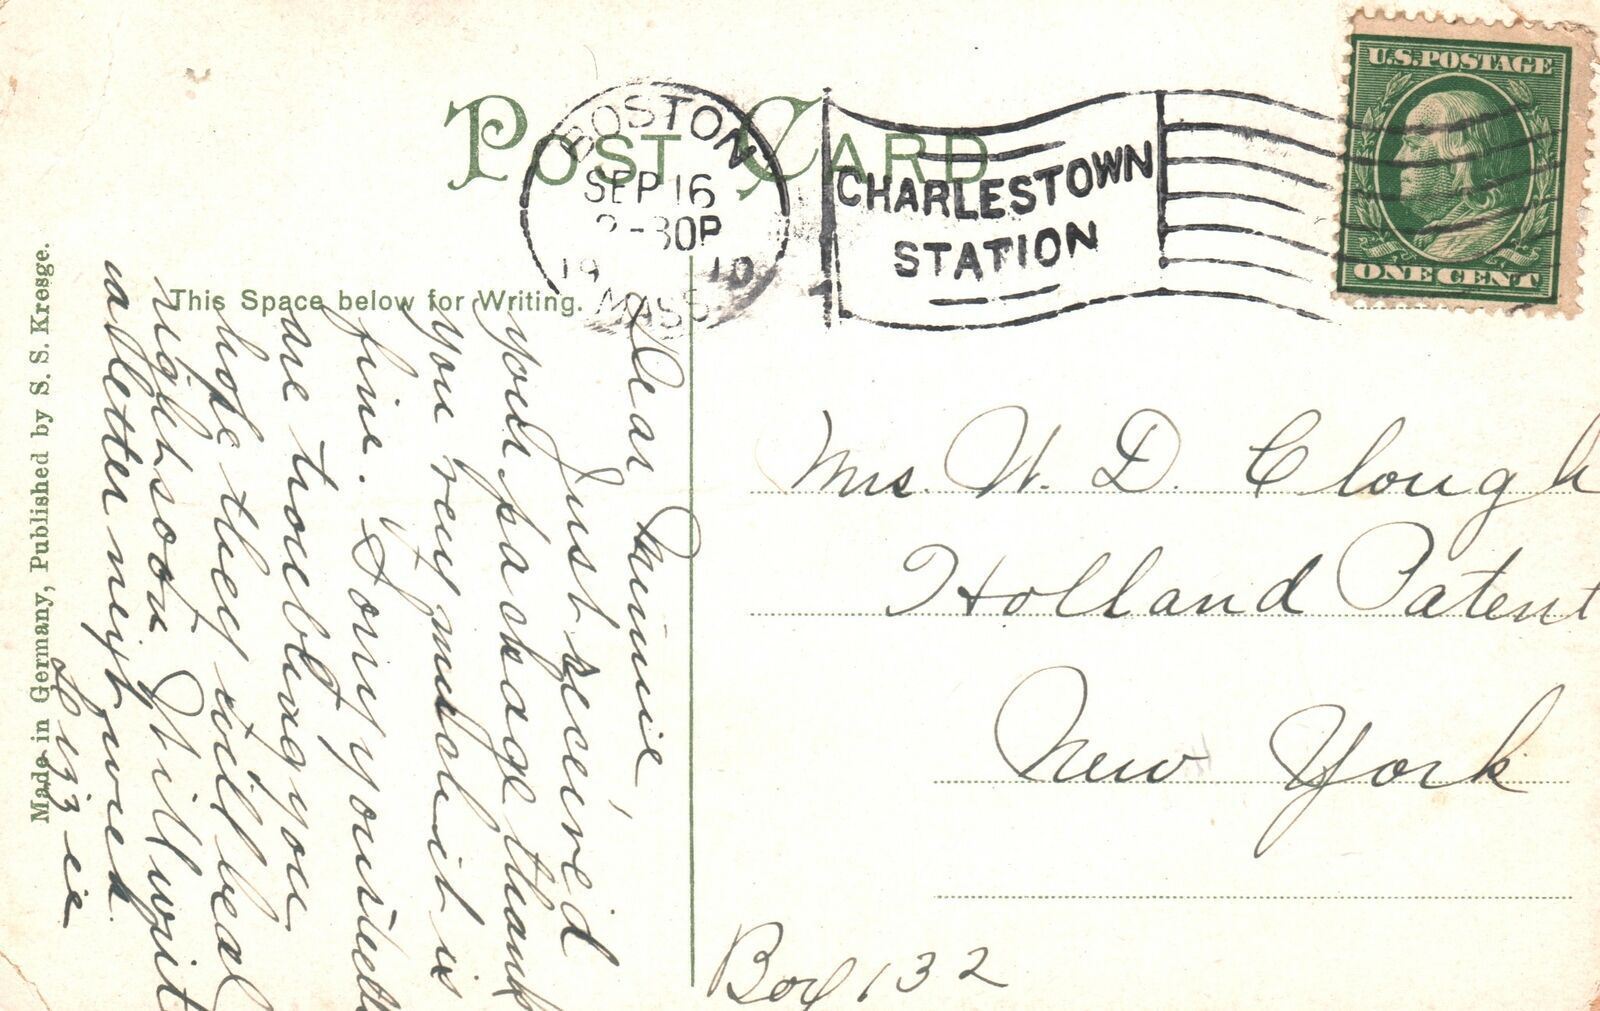 POST CARD
BOSTON
SEP 16
-30P
19 10
MASS.
CHARLESTOWN
STATION
U.S. POSTAGE
ONE CENT
This Space below for Writing.
Made in Germany, Published by S. S. Kresge.
Dear Minnie,
Just received
your package thank
you very much it is
fine. Sorry your teeth
are troubling you
hope they will be al
right soon. Will writ
a letter next week.
Lizzie
Mrs. W. D. Clough
Holland Patent
New York
Box 132